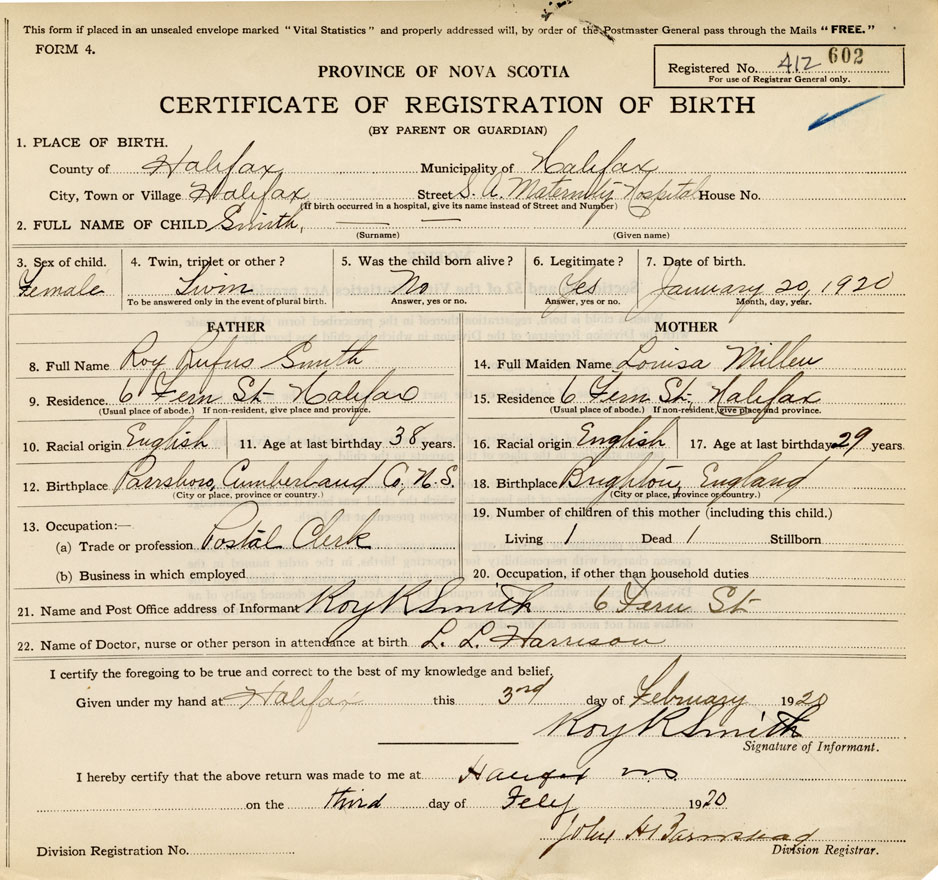 This form if placed in an unsealed envelope marked "Vital Statistics" and properly addressed will, by order of the Postmaster General pass through the Mails "FREE."
FORM 4.
Registered No. 412 602
For use of Registrar General only.
PROVINCE OF NOVA SCOTIA
CERTIFICATE OF REGISTRATION OF BIRTH
(BY PARENT OR GUARDIAN)
1. PLACE OF BIRTH.
County of Halifax Municipality of Halifax
City, Town or Village Halifax Street S. A. Maternity Hospital House No.
(If birth occurred in a hospital, give its name instead of Street and Number)
2. FULL NAME OF CHILD Smith, — —
(Surname) (Given name)
3. Sex of child. 4. Twin, triplet or other? 5. Was the child born alive? 6. Legitimate? 7. Date of birth.
Female Twin No Yes January 20, 1920
To be answered only in the event of plural birth. Answer, yes or no. Answer, yes or no. Month, day, year.
FATHER MOTHER
8. Full Name Roy Rufus Smith 14. Full Maiden Name Louisa Millen
9. Residence. 6 Fern St Halifax 15. Residence 6 Fern St. Halifax
(Usual place of abode.) If non-resident, give place and province. (Usual place of abode.) If non-resident, give place and province.
10. Racial origin English 11. Age at last birthday 38 years. 16. Racial origin English 17. Age at last birthday 29 years.
12. Birthplace Parrsboro, Cumberland Co, N.S. 18. Birthplace Brighton, England
(City or place, province or country.) (City or place, province or country.)
13. Occupation:— 19. Number of children of this mother (including this child.)
(a) Trade or profession Postal Clerk Living 1 Dead 1 Stillborn
(b) Business in which employed 20. Occupation, if other than household duties
21. Name and Post Office address of Informant Roy R Smith 6 Fern St
22. Name of Doctor, nurse or other person in attendance at birth L. L. Harrison
I certify the foregoing to be true and correct to the best of my knowledge and belief,
Given under my hand at Halifax this 3rd day of February 1920
Roy R Smith
Signature of Informant.
I hereby certify that the above return was made to me at Halifax NS
on the third day of Feby 1920
John H Barnstead
Division Registrar.
Division Registration No.